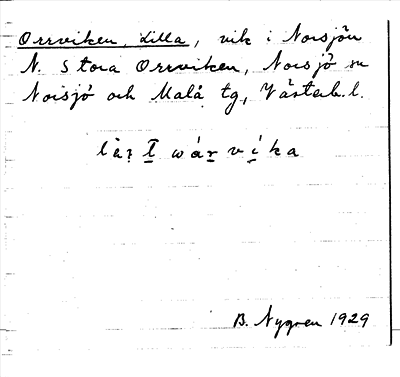 Orrviken, Lilla, vik i Norsjön
N. Stora Orrviken, Norsjö sn
Norsjö och Malå tg, Västerb. l.
wár víka
B. Nygren 1929